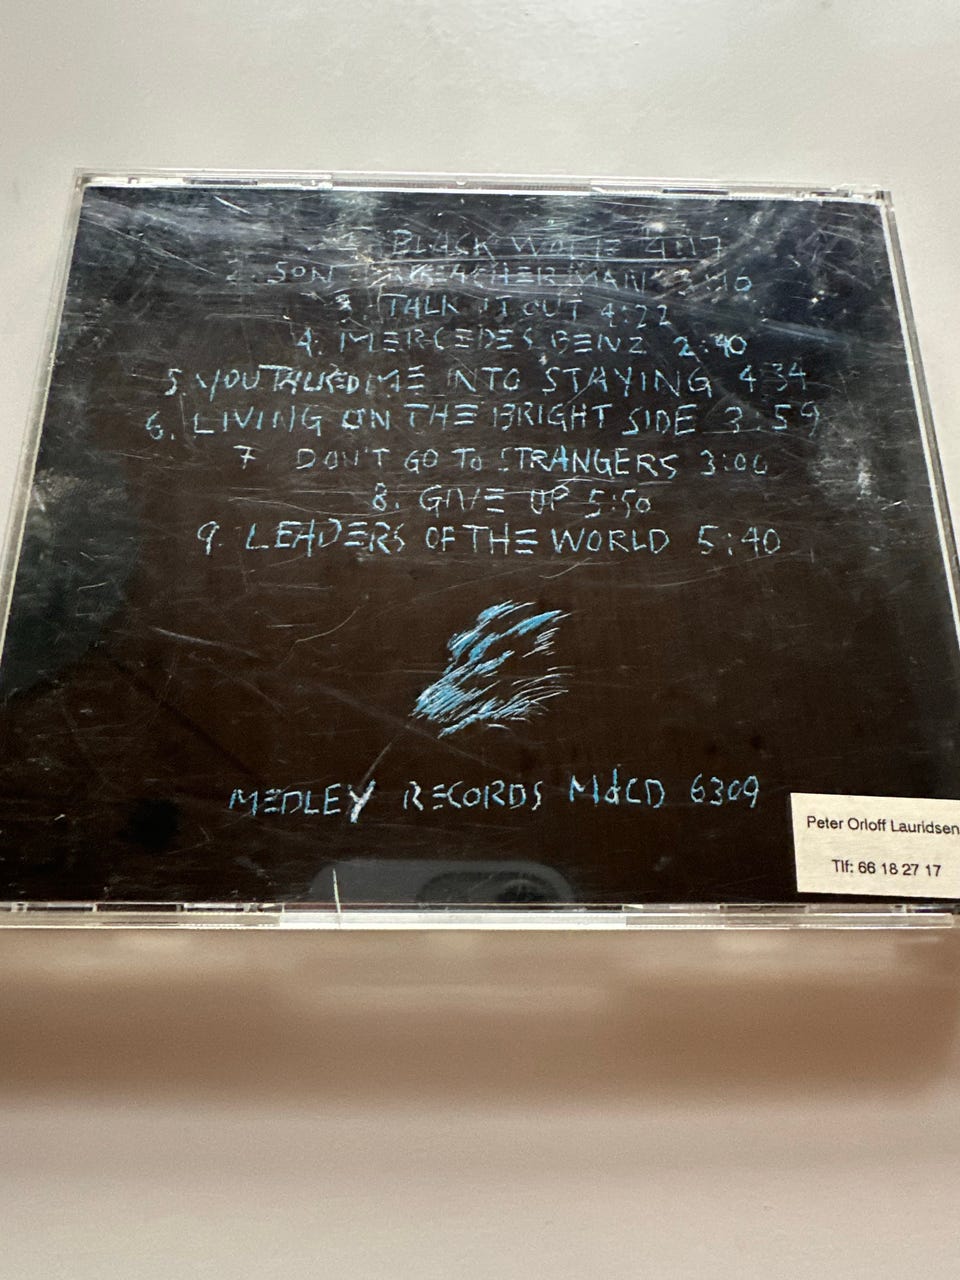 BLACK 4:17
2. SON PREACHER MAN :10
3. TALK IT OUT 4:22
4. MERCEDES BENZ 2:40
5. YOU TALKED ME INTO STAYING 4:34
6. LIVING ON THE BRIGHT SIDE 3.59
7 DON'T GO TO STRANGERS
8. GIVE UP 5:50
9. LEADERS OF THE WORLD 5:40
MEDLEY RECORDS MdCD 6309
Peter Orloff Lauridsen
Tlf: 66 18 27 17